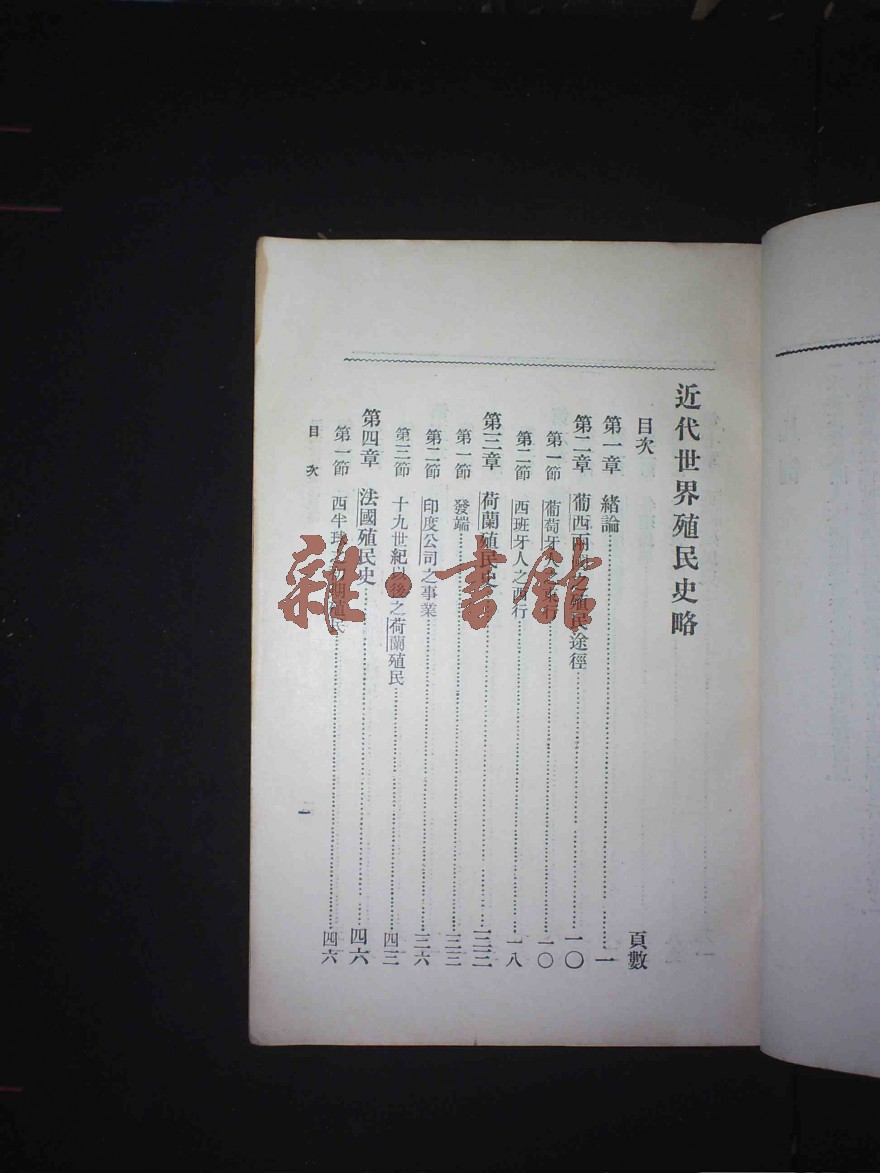 近代世界殖民史略
目次 頁數
第一章 緒論 一
第二章 葡西兩國之殖民途徑 一〇
第一節 葡萄牙人之東行 一〇
第二節 西班牙人之西行 一八
第三章 荷蘭殖民史 三三
第一節 發端 三三
第二節 印度公司之事業 三六
第三節 十九世紀以後之荷蘭殖民 四三
第四章 法國殖民史 四六
第一節 西半球之初期殖民 四六
目次 一
雜·書館